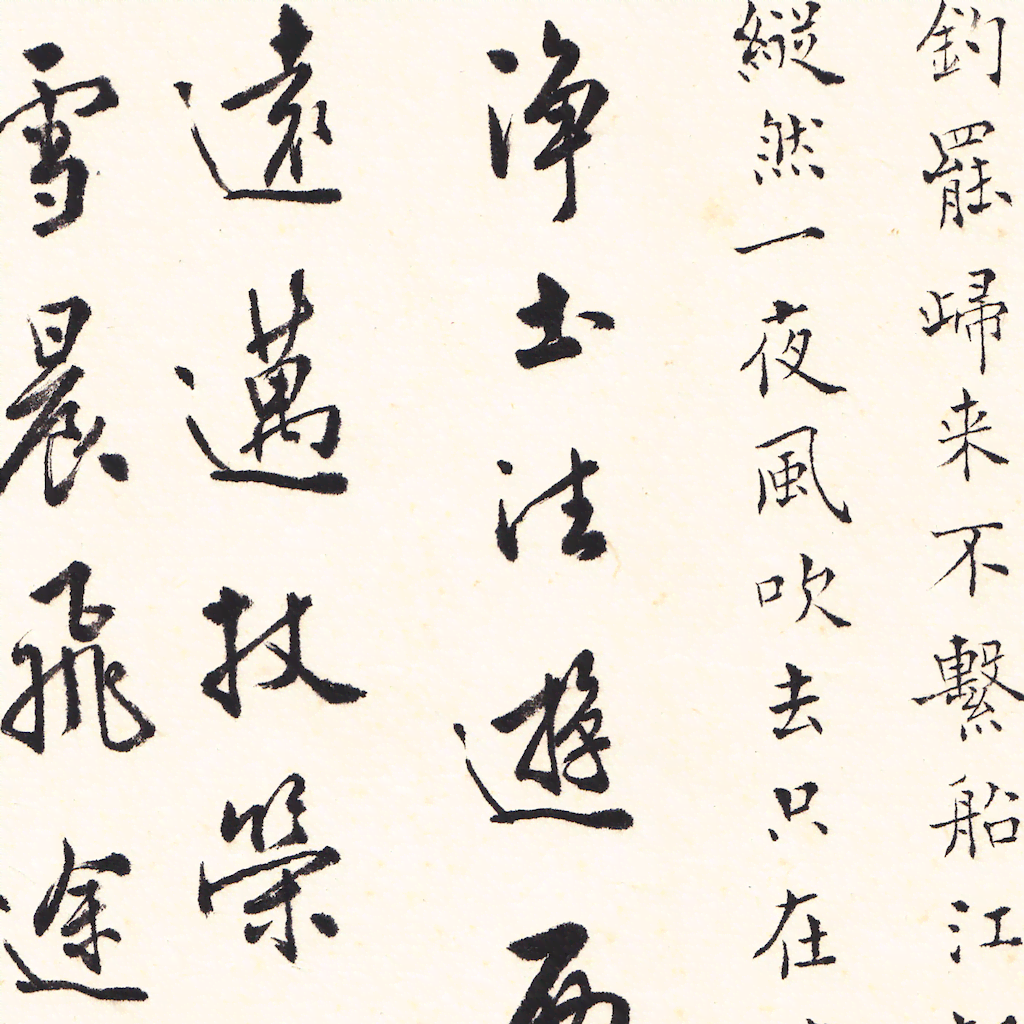 釣罷歸来不繫船江
縦然一夜風吹去只在
淨土法遊西
遠邁杖策
雪晨飛途